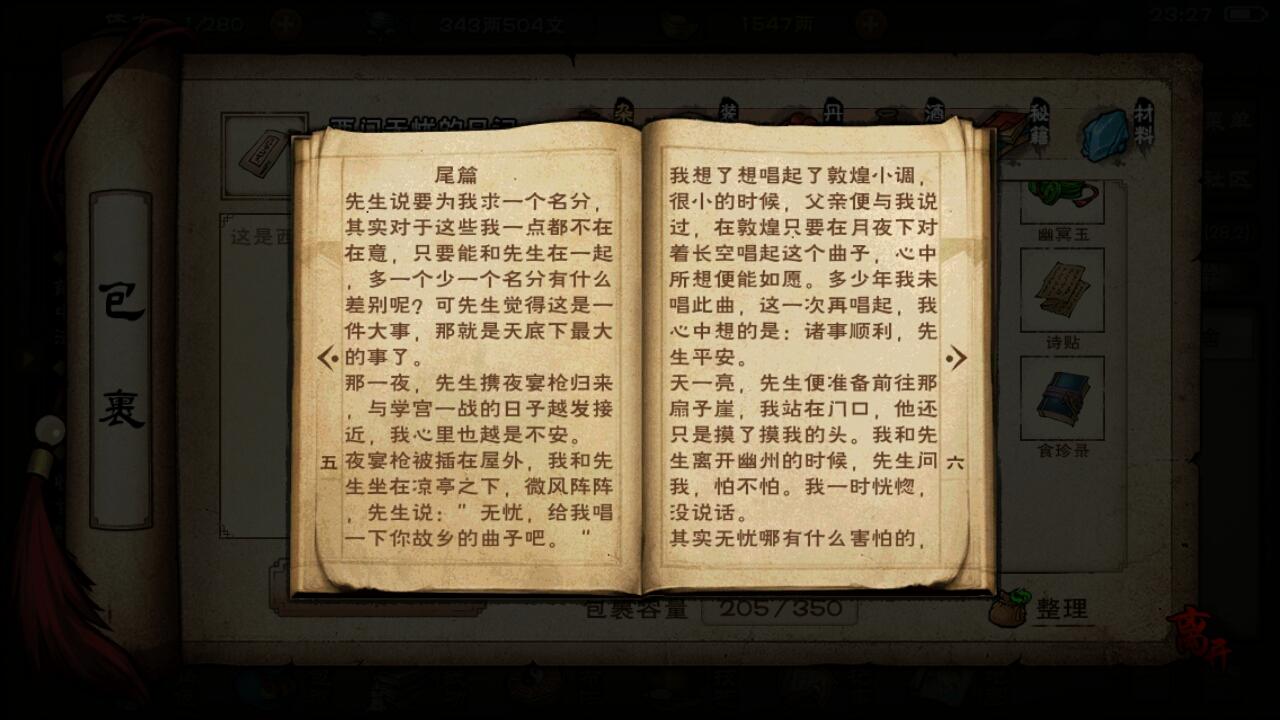 /280
343两504文
1547两
23:27
西门无忧的日记
杂
装
丹
酒
秘籍
材料
这是西
包裹
尾篇
先生说要为我求一个名分，
其实对于这些我一点都不在
在意，只要能和先生在一起
，多一个少一个名分有什么
差别呢？可先生觉得这是一
件大事，那就是天底下最大
的事了。
那一夜，先生携夜宴枪归来
，与学宫一战的日子越发接
近，我心里也越是不安。
夜宴枪被插在屋外，我和先
生坐在凉亭之下，微风阵阵
，先生说：”无忧，给我唱
一下你故乡的曲子吧。“
五
我想了想唱起了敦煌小调，
很小的时候，父亲便与我说
过，在敦煌只要在月夜下对
着长空唱起这个曲子，心中
所想便能如愿。多少年我未
唱此曲，这一次再唱起，我
心中想的是：诸事顺利，先
生平安。
天一亮，先生便准备前往那
扇子崖，我站在门口，他还
只是摸了摸我的头。我和先
生离开幽州的时候，先生问
我，怕不怕。我一时恍惚，
没说话。
其实无忧哪有什么害怕的，
六
幽冥玉
诗贴
食珍录
包裹容量
205/350
整理
离开